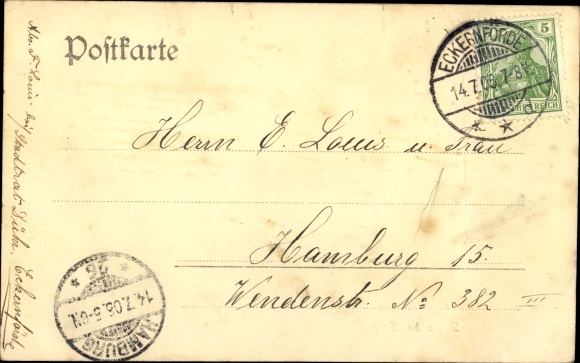 Postkarte
5
ECKERNFÖRDE
14.7.05. 7-8
REICH
Herrn E. Louis u. Frau
Hamburg 15.
Wendenstr. No 382 III
HAMBURG
14.7.05.
F. Louis. bei Stadtrat Dühr, Eckernförde